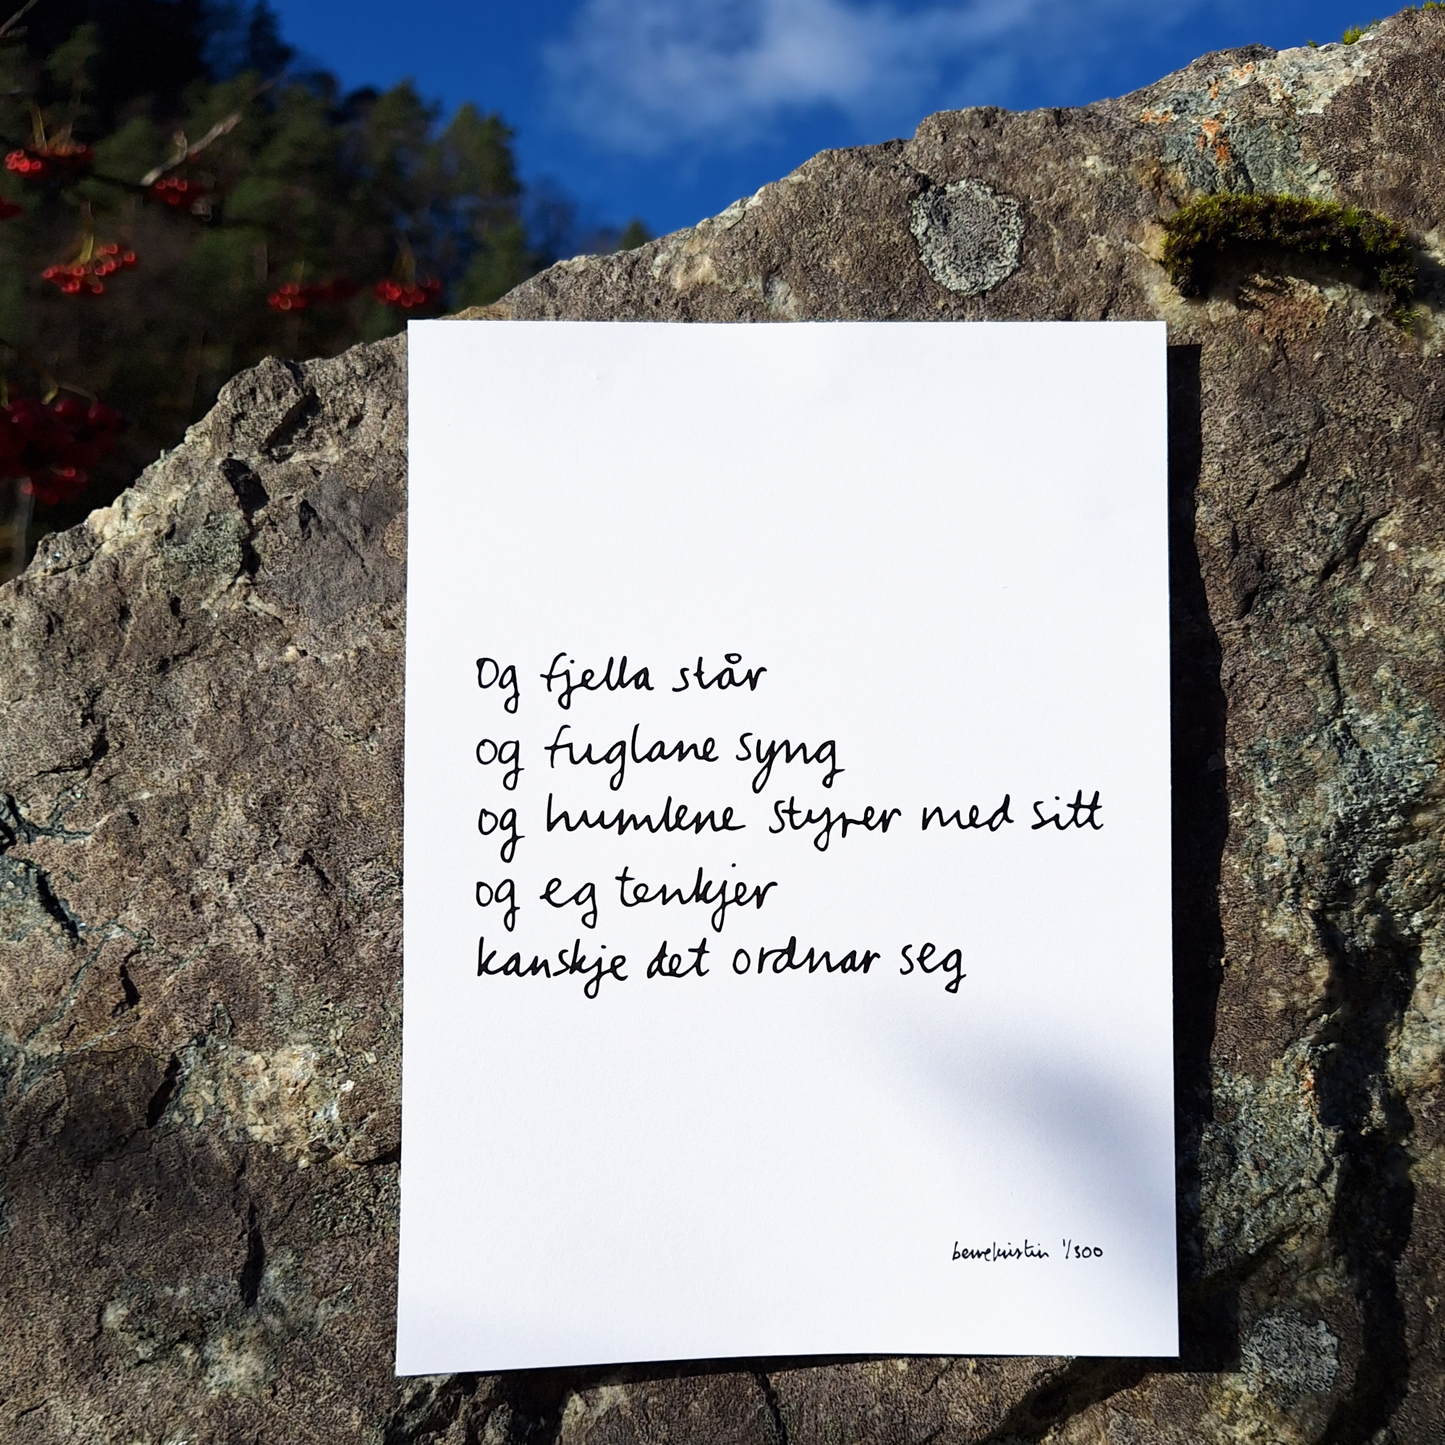 Og fjella står
og fuglane syng
og humlene styrer med sitt
og eg tenkjer
kanskje det ordnar seg
1/300